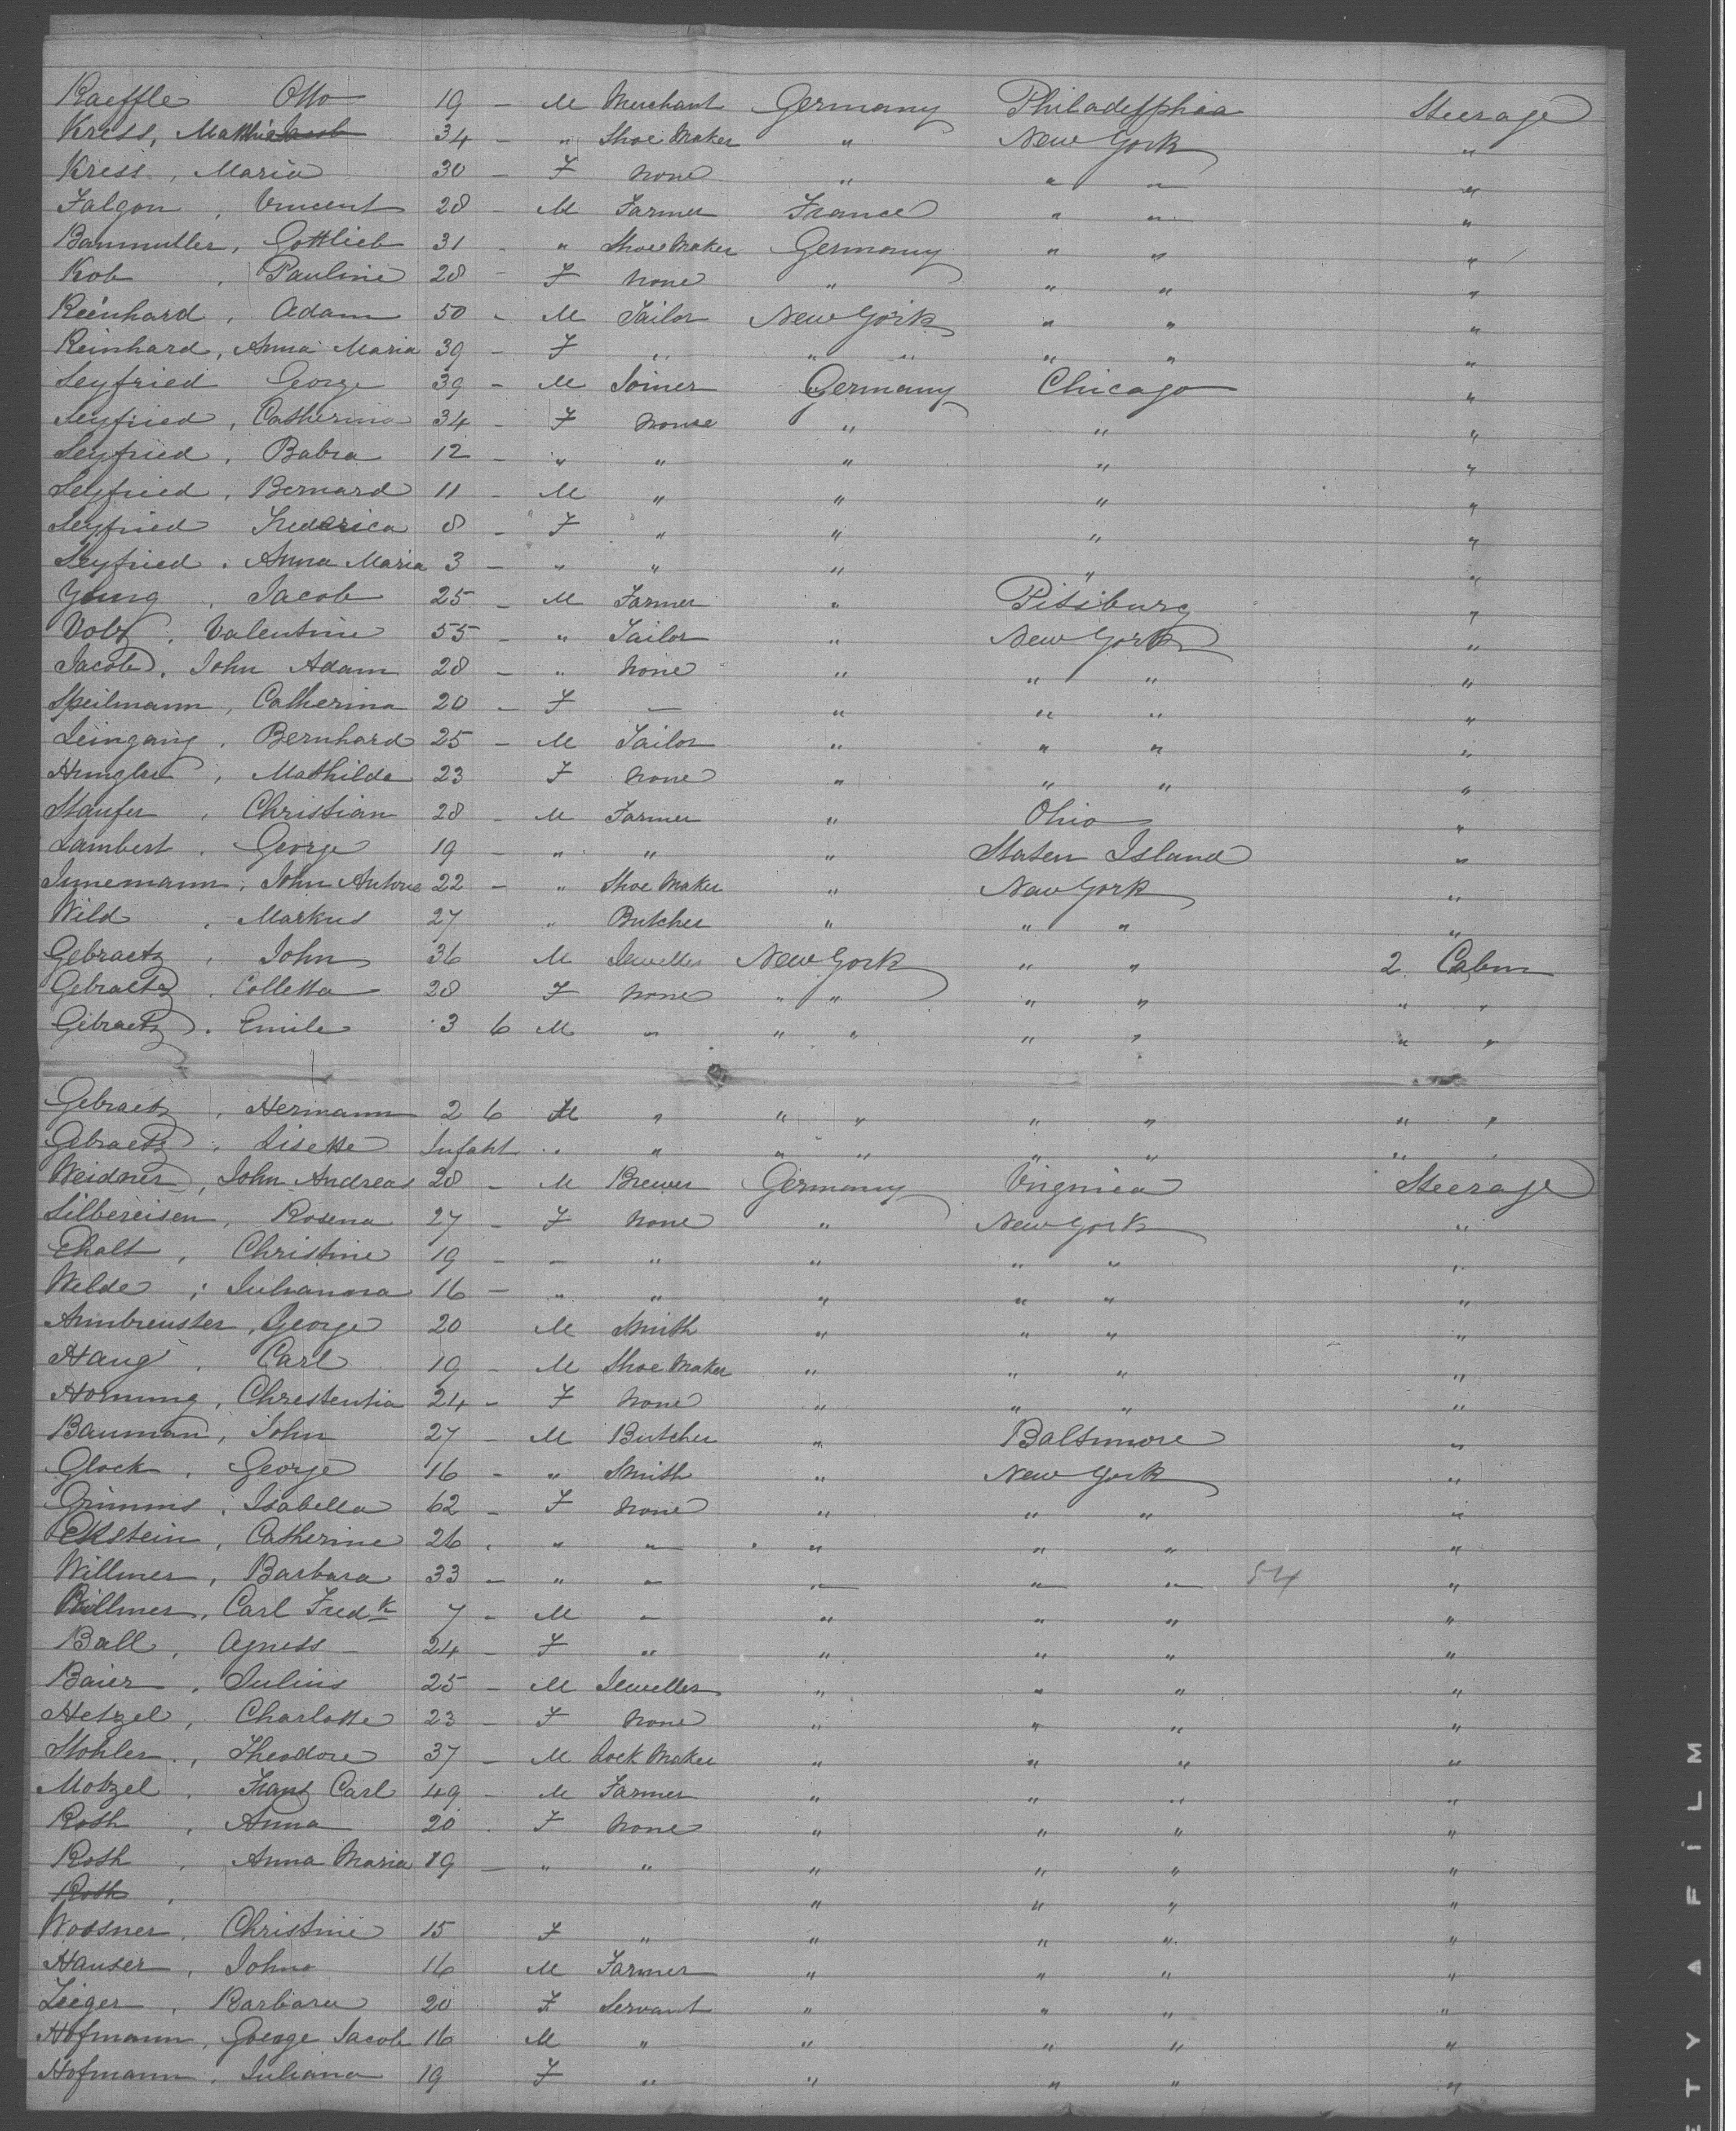 Raeffle Otto 19 - M Merchant Germany Philadelphia Steerage
Kress, Mathias 34 - " Shoe Maker " New York "
Kress, Maria 30 - F none " " " "
Falgon, Vincent 28 - M Farmer France " " "
Banmuller, Gottlieb 31 - " Shoe Maker Germany " " "
Kob, Pauline 28 - F none " " " "
Reinhard, Adam 50 - M Tailor New York " " "
Reinhard, Anna Maria 39 - F " " " " " "
Seyfried George 39 - M Joiner Germany Chicago "
Seyfried, Catherina 34 - F none " " "
Seyfried, Babra 12 - " " " " "
Seyfried, Bernard 11 - M " " " "
Seyfried Frederica 8 - F " " " "
Seyfried, Anna Maria 3 - " " " " "
Young, Jacob 25 - M Farmer " Pitsburg "
Volz, Valentine 55 - " Tailor " New York "
Jacob, John Adam 28 - " none " " " "
Speilmann, Catherina 20 - F - " " " "
Leingang, Bernhard 25 - M Tailor " " " "
Mathilda 23 F none " " " "
Staufer, Christian 28 - M Farmer " Ohio "
Lambert, George 19 - " " " Staten Island "
Junemann, John 22 - " Shoe Maker " New York "
Wild, Markus 27 " Butcher " " " "
Gebraetz, John 36 M Jeweller New York " " 2 Cabin
Gebraetz, Colletta 28 F none " " " " " "
Gebraetz, Emile 3 6 M " " " " " " "
Gebraetz, Hermann 2 6 M " " " " " " "
Gebraetz, Lisette Infant " " " " " " " "
Weidner, John Andreas 28 - M Brewer Germany Virginia Steerage
Silbereisen, Rosena 27 - F none " New York "
Ehalt, Christine 19 - " " " " " "
Welde, Julianna 16 - " " " " " "
Armbreuster, George 20 M Smith " " " "
Haug, Carl 19 - M Shoe Maker " " " "
Hornung, Chrestentia 24 - F none " " " "
Bauman, John 27 - M Butcher " Baltimore "
Glock, George 16 - " Smith " New York "
Grimms, Isabella 62 - F none " " " "
Ekstein, Catherine 26 " " " " " "
Willmer, Barbara 33 - " " " " " 54 "
Willmer, Carl Fredk 7 - M " " " " "
Ball, Agness 24 - F " " " " "
Baier, Julius 25 - M Jeweller " " " "
Hetzel, Charlotte 23 - F none " " " "
Stohler, Theodore 37 - M Lock Maker " " " "
Motzel, Franz Carl 49 - M Farmer " " " "
Roth, Anna 20 F none " " " "
Roth, Anna Maria 19 - " " " " " "
Roth, " " " "
Wossner, Christine 15 F " " " " "
Hauser, John 16 M Farmer " " " "
Zieger, Barbara 20 F Servant " " " "
Hofmann, George Jacob 16 M " " " " "
Hofmann, Juliana 19 F " " " " "
ETY A FILM